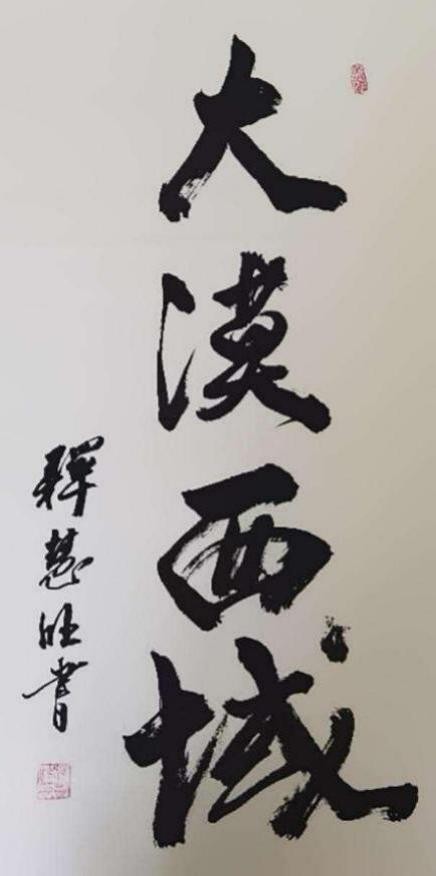 大漠西域
释慧旺书